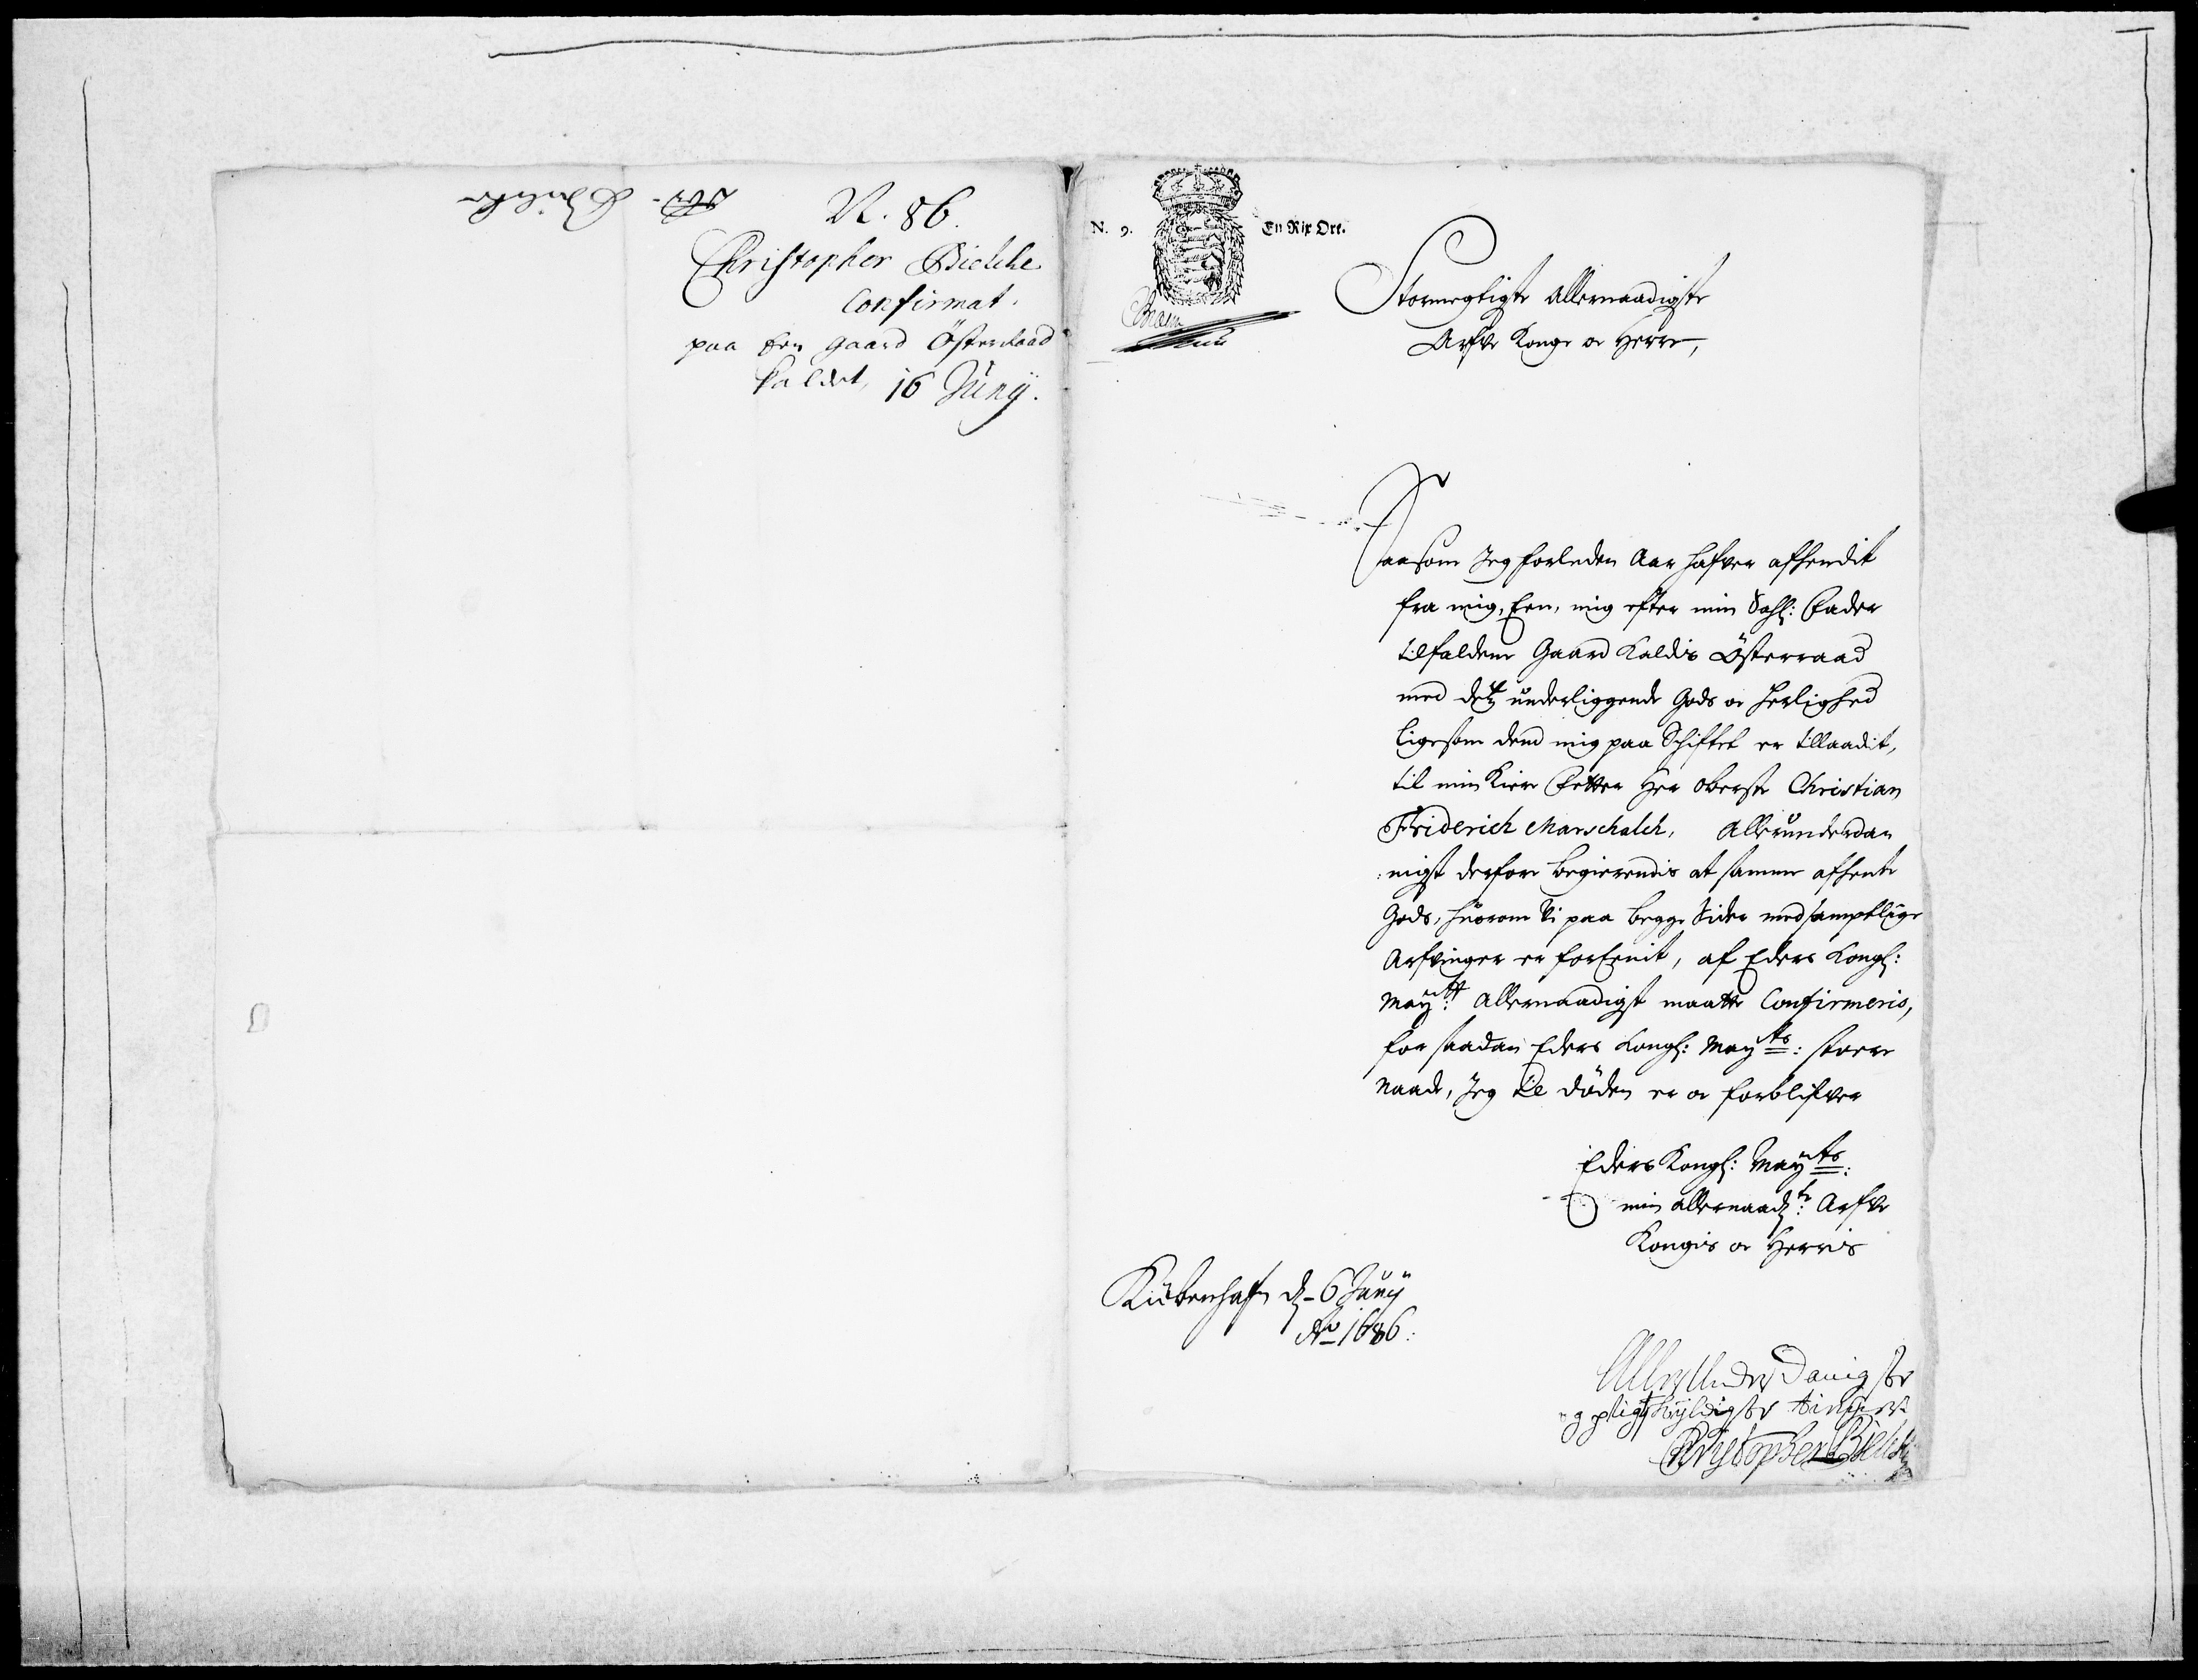 N. 86.
Christopher Bielche
Confirmat.
paa Een gaard Österaad
kaldet, 16 Juny.
N. 9.
En Rix Ort.
Stormegtigste Allernaadigste
Arfve Konge oc Herre,
Saasom Jeg forleden Aar hafver afhendit
fra mig, Een, mig efter min Sahl: Fader
tilfalden Gaard kaldis Österraad
med detz underliggende Gods oc herlighed
ligesom dend mig paa Schiftet er tillaadit,
til min Kiere Fetter Her Oberste Christian
Friderich Marschalch, Allerunderdan
nigst derfore begierendis at samme afhente
Gods, huorom Vi paa begge Sider med samptlige
Arfvinger er forEenit, af Eders Kongl:
Maytt: Allernaadigst maatte Confirmeris,
for saadan Eders Kongl: Mayts: store
Naade, Jeg til döden er oc forblifver
Eders Kongl: Mayts:
min allernaadste: Arfve
Kongis oc Herris
Kiöbenhafn d. 6 Juny
Ao 1686:
AllerUnderDanigste
og pligtskyldigste tienner
Christopher Bielche